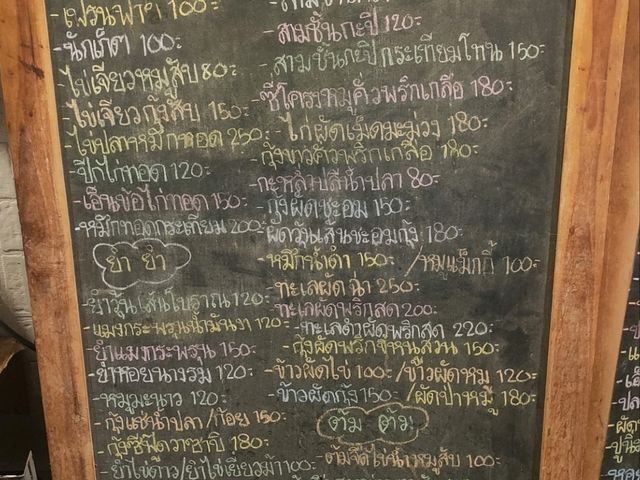 -เฟรนฟาย 100:
-นักเก็ต 100:
-ไข่เจียวหมูสับ 80:
-ไข่เจียวกุ้งสับ 150:
-ไข่ปลาหมึกทอด 250:
-ปีกไก่ทอด 120:
-เอ็นข้อไก่ทอด 150:
-หมึกทอดกระเทียม 200:
ยำ ยำ
-ยำวุ้นเส้นโบราณ 120:
-แมงกระพรุนน้ำมันงา 120:
ยำแมงกระพรุน 150:
-ยำหอยนางรม 120:
-หมูมะนาว 120:
-กุ้งแช่น้ำปลา/ก้อย 150:
-กุ้งซีฟู๊ดวาซาบิ 180:
-ยำไข่ดาว/ยำไข่เยี่ยวม้า 100:
-สามชั้นกะปิ 120:
-สามชั้นกะปิกระเทียมโทน 150:
-ซี่โครงหมูคั่วพริกเกลือ 180:
-ไก่ผัดเม็ดมะม่วง 180:
-กุ้งขาวคั่วพริกเกลือ 180:
-กะหล่ำปลีน้ำปลา 80:
-กุ้งผัดชะอม 150:
ผัดวุ้นเส้นชะอมกุ้ง 180:
-หมึกน้ำดำ 150: /หมูแม็กกี้ 100:
-ทะเลผัดฉ่า 250:
-ทะเลผัดพริกสด 200:
-ทะเลดำผัดพริกสด 220:
-กุ้งผัดพริกขี้หนูสวน 150:
-ข้าวผัดไข่ 100:/ข้าวผัดหมู 120:
-ข้าวผัดกุ้ง 150:/ผัดป่าหมู 180:
ต้ม ต้ม
-ต้มจืดไข่น้ำหมูสับ 100: